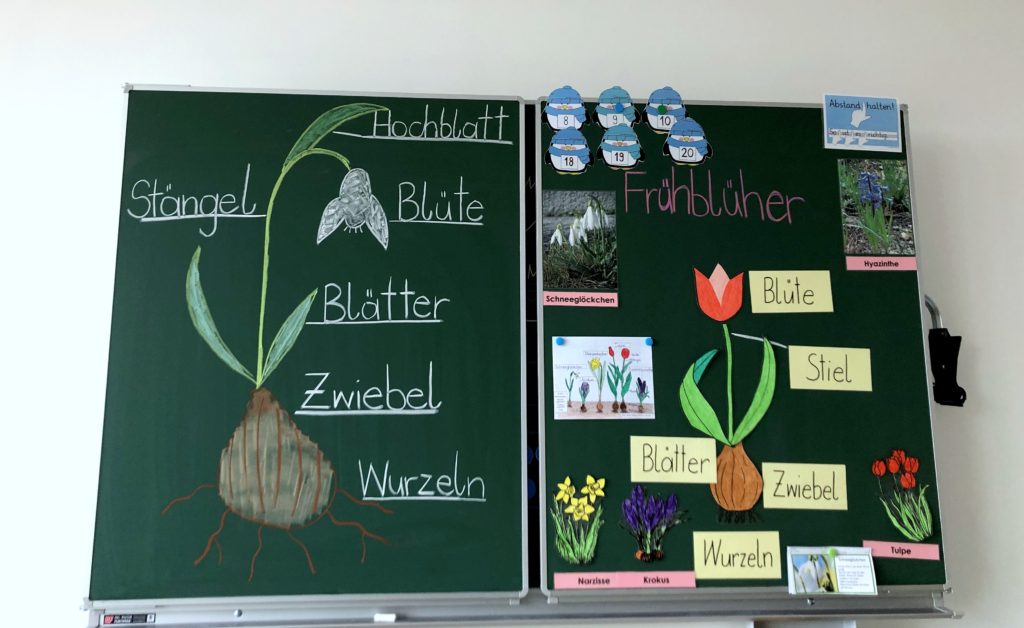 Hochblatt
Stängel
Blüte
Blätter
Zwiebel
Wurzeln
8
9
10
18
19
20
Abstand halten!
Frühblüher
Schneeglöckchen
Hyazinthe
Blüte
Stiel
Blätter
Zwiebel
Wurzeln
Narzisse
Krokus
Tulpe